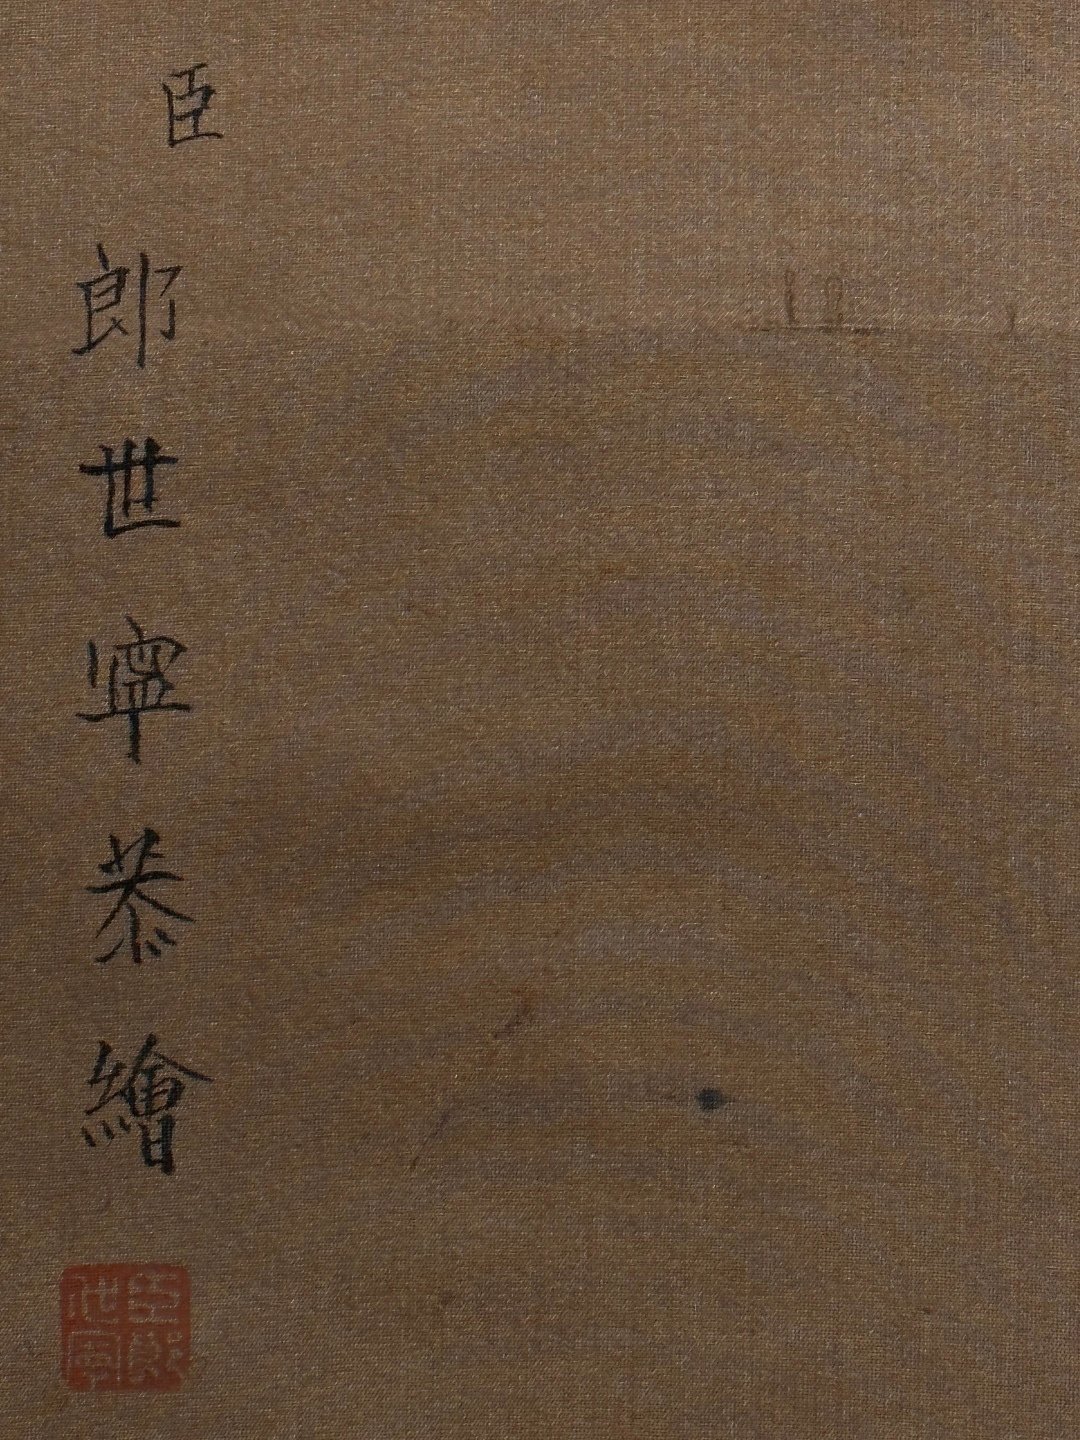 臣
郎世寧恭繪
臣郎
世寧